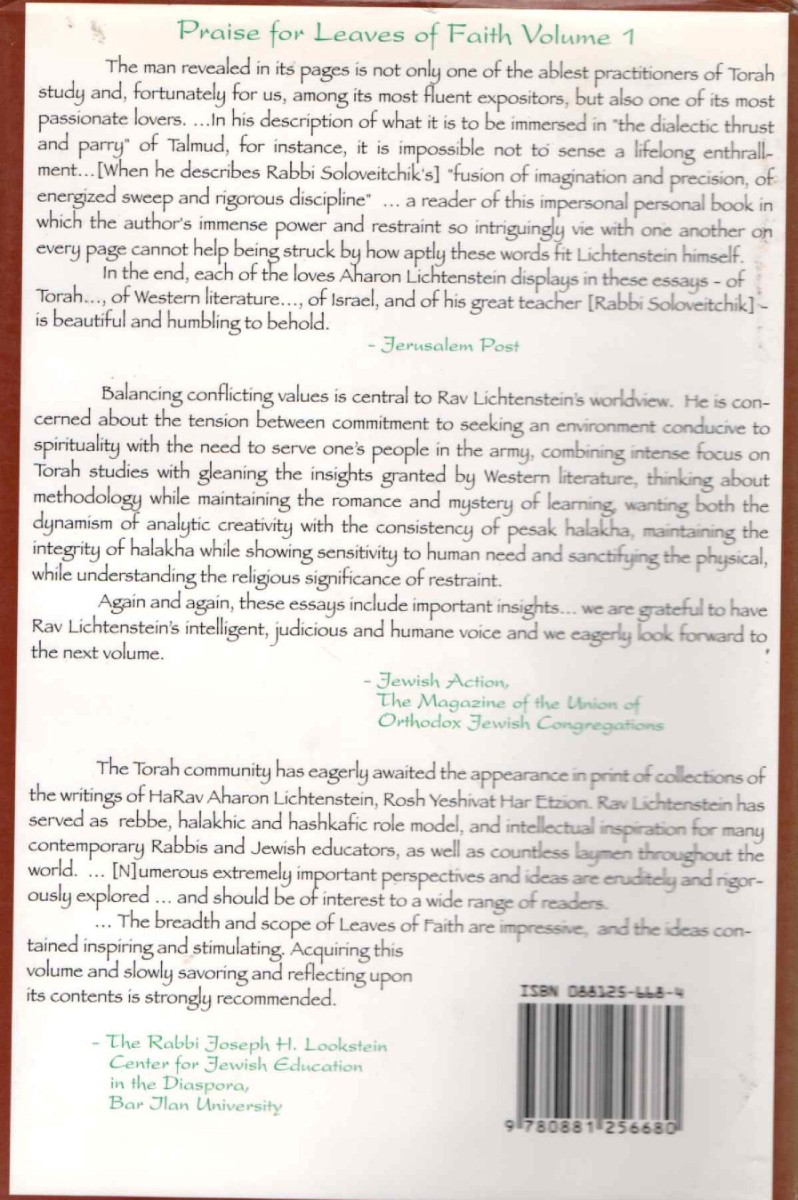 Praise for Leaves of Faith Volume 1
The man revealed in its pages is not only one of the ablest practitioners of Torah
study and, fortunately for us, among its most fluent expositors, but also one of its most
passionate lovers. ...In his description of what it is to be immersed in "the dialectic thrust
and parry" of Talmud, for instance, it is impossible not to sense a lifelong enthrall-
ment...[When he describes Rabbi Soloveitchik's] "fusion of imagination and precision, of
energized sweep and rigorous discipline" ... a reader of this impersonal personal book in
which the author's immense power and restraint so intriguingly vie with one another on
every page cannot help being struck by how aptly these words fit Lichtenstein himself.
In the end, each of the loves Aharon Lichtenstein displays in these essays - of
Torah..., of Western literature..., of Israel, and of his great teacher [Rabbi Soloveitchik] -
is beautiful and humbling to behold.
- Jerusalem Post
Balancing conflicting values is central to Rav Lichtenstein's worldview. He is con-
cerned about the tension between commitment to seeking an environment conducive to
spirituality with the need to serve one's people in the army, combining intense focus on
Torah studies with gleaning the insights granted by Western literature, thinking about
methodology while maintaining the romance and mystery of learning, wanting both the
dynamism of analytic creativity with the consistency of pesak halakha, maintaining the
integrity of halakha while showing sensitivity to human need and sanctifying the physical,
while understanding the religious significance of restraint.
Again and again, these essays include important insights... we are grateful to have
Rav Lichtenstein's intelligent, judicious and humane voice and we eagerly look forward to
the next volume.
- Jewish Action,
The Magazine of the Union of
Orthodox Jewish Congregations
The Torah community has eagerly awaited the appearance in print of collections of
the writings of HaRav Aharon Lichtenstein, Rosh Yeshivat Har Etzion. Rav Lichtenstein has
served as rebbe, halakhic and hashkafic role model, and intellectual inspiration for many
contemporary Rabbis and Jewish educators, as well as countless laymen throughout the
world. ... [N]umerous extremely important perspectives and ideas are eruditely and rigor-
ously explored ... and should be of interest to a wide range of readers.
... The breadth and scope of Leaves of Faith are impressive, and the ideas con-
tained inspiring and stimulating. Acquiring this
volume and slowly savoring and reflecting upon
its contents is strongly recommended.
- The Rabbi Joseph H. Lookstein
Center for Jewish Education
in the Diaspora,
Bar Ilan University
ISBN 088125-668-4
9 780881 256680